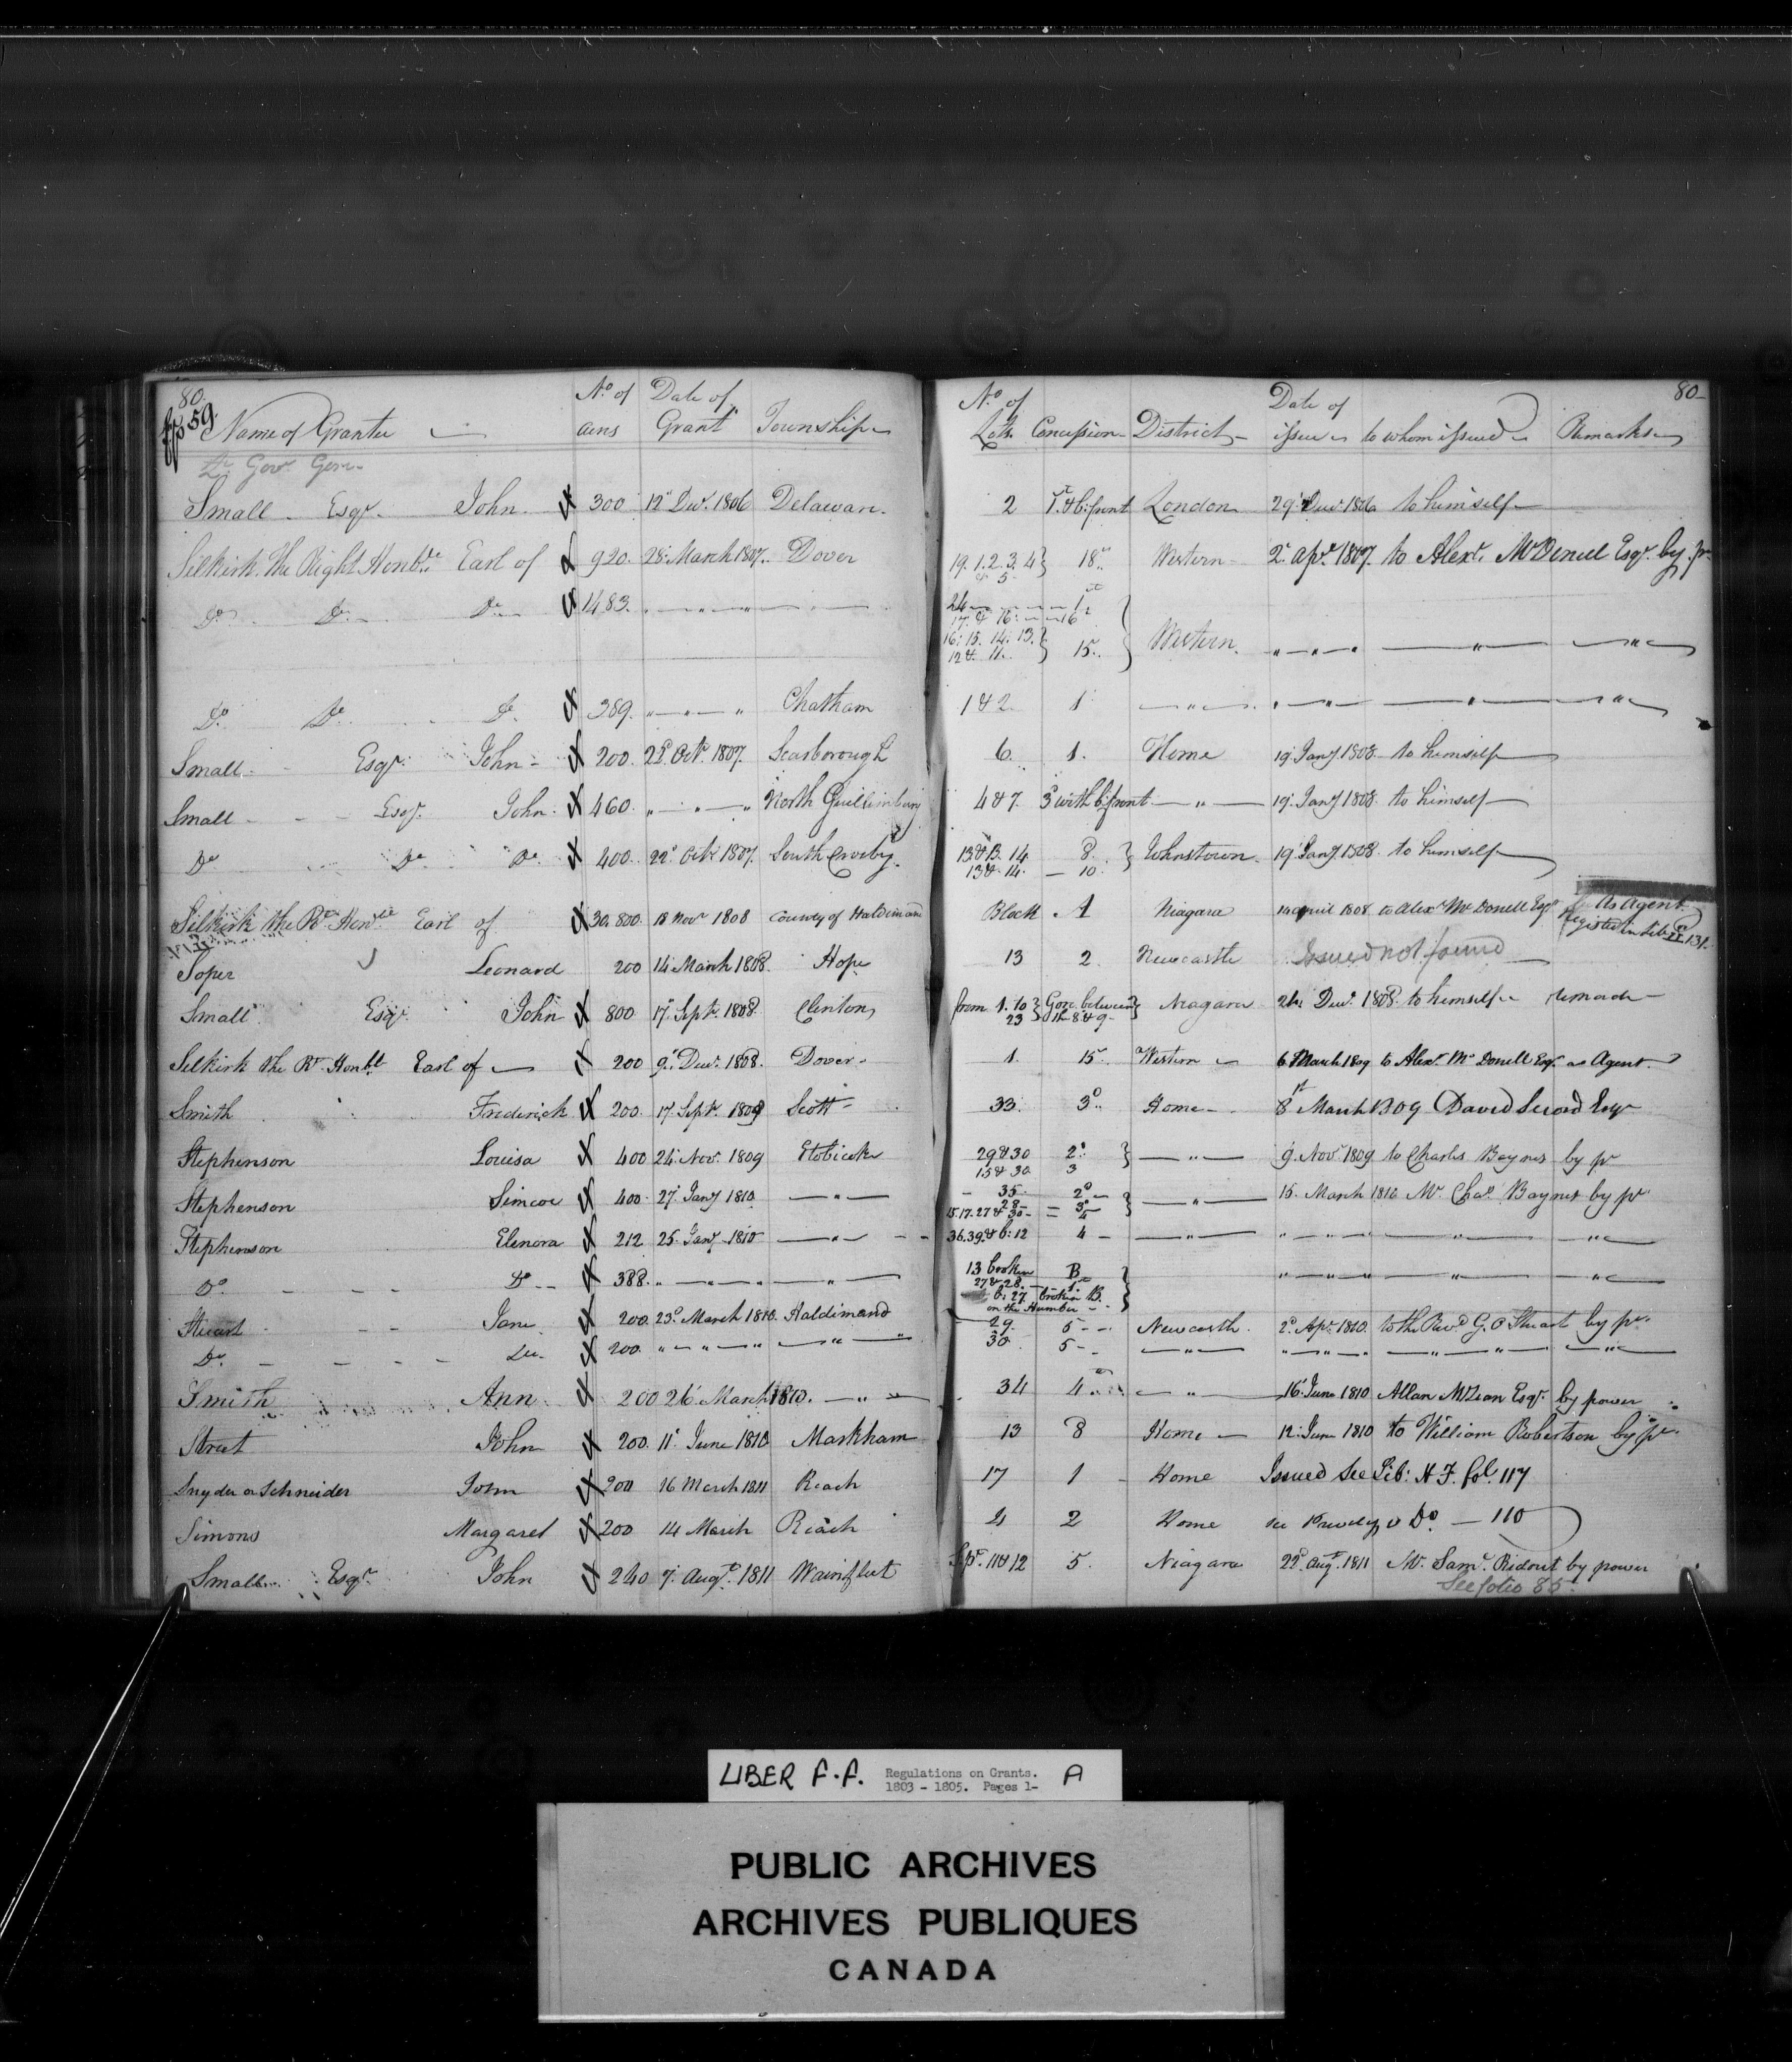 80. 80
fp 59.
Name of Grantee No. of acres Date of Grant Township No. of Lots Concession District Date of issue to whom issued Remarks
Lt. Gov. Gore
Small Esqr. John 300 12 Decr. 1806 Delaware. 2 1st & b: front London 29 Decr. 1806 to himself
Selkirk. the Right Honble. Earl of 920. 28. March 1807. Dover 19. 1. 2. 3. 4 & 5 18 Western 2 apr. 1807. to Alexr. McDonell Esqr. by pr.
Do. Do. Do. 1483. " " " 24 1st
17. & 16: 16
16: 15. 14: 13. 12 & 11. 15. Western. " " "
Do. Do. Do. 389. " " " Chatham 1 & 2. 1 " " " " "
Small Esqr. John 200. 22d. Octr. 1807. Scarborough 6. 1. Home 19. Jany 1808 to himself
Small Esqr. John. 460. " " " North Guillimbury 4 & 7. 3d with b: front " 19. Jany 1808. to himself
Do Do Do. 400. 22d. Octr. 1807. South Crosby. 13 & B. 14 8. Johnstown 19. Jany 1808. to himself
13 & 14. 10.
Selkirk the Rt. Honble. Earl of 30,800. 18 Novr 1808 County of Haldimand Block A Niagara april 1808 to Alexr McDonell Esqr As Agent
Registed in Lib:
Soper Leonard 200 14 March 1808. Hope 13 2. Newcastle Issued not found
Small Esqr John 800 17. Septr. 1808. Clinton from 1. to 23 Gore between the 8 & 9 Niagara 24 Decr. 1808. to himself
Selkirk the Rt. Honble Earl of 200 9. Decr. 1808. Dover 1. 15. Western 6 March 1809 to Alexr. McDonell Esqr. as Agent.
Smith Frederick 200. 17 Septr. 1809 Scott 33. 3d. Home 8 March 1809 David Secord Esqr
Stephenson Louisa 400 24. Novr. 1809 Etobicoke 29 & 30 2d. " 9. Novr. 1809 to Charles Baynes by pr
15 & 30 3
Stephenson Simcoe 400. 27. Jany 1810 " 35. 2d " 15. March 1810 Mr. Chas. Baynes by pr.
28 3
15. 17. 27 & 30 4
Stephenson Elenora 212 25. Jany 1810 " 36. 39 & b: 12 4 " " " " "
Do. Do 388. " " " 13 broken B " " " "
27 & 28. 1st
b: 27. broken B.
on the Humber
Stuart Jane 200. 23d. March 1810. Haldimand 29. 5 Newcastle. 2d. Apr. 1810 to the Revd G. O Stuart by pr.
Do. Do. 200. " " " " 30 5 " " " " "
Smith Ann 200 26 March 1810. " 34 4 " 16. June 1810 Allan McLean Esqr. by power
Street John 200. 11. June 1810 Markham 13 8 Home 12. June 1810 to William Robertson by pr.
Snyder or Schneider John 200 16 March 1811 Reach 17 1 Home Issued See Lib: H F. fol. 117
Simons Margaret 200 14 March Reach 4 2 Home Do 110
Small Esqr. John 240 7. Augt. 1811 Wainfleet 11 & 12 5. Niagara 22d. Augt. 1811 Mr. Saml. Ridout by power
See folio 85.
LIBER F.F. Regulations on Grants. A
1803 - 1805. Pages 1-
PUBLIC ARCHIVES
ARCHIVES PUBLIQUES
CANADA